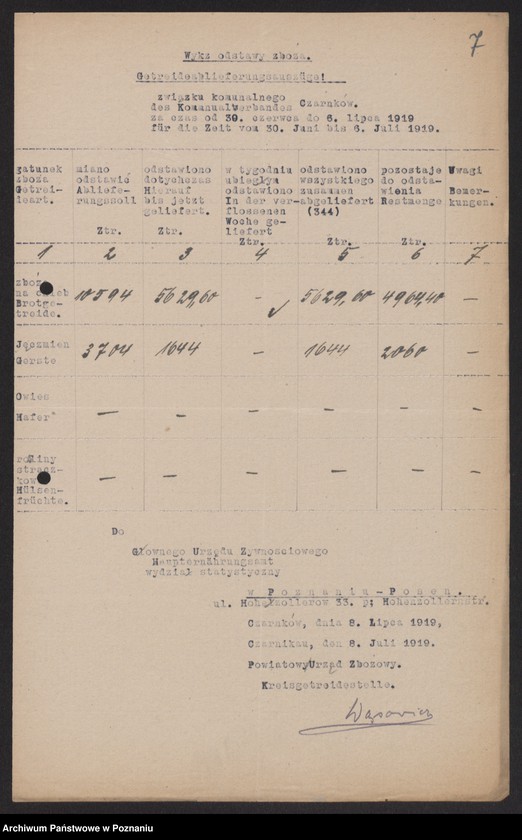 7
Wykz odstawy zboża.
Getreideablieferungsauszüge!
związku komunalnego
des Komunalwerbandes Czarnków.
za czas od 30. czerwca do 6. lipca 1919
für die Zeit vom 30. Juni bis 6. Juli 1919.
gatunek zboża Getrei-deart.
miano odstawić Abliefe-rungssoll Ztr.
odstawiono dotychczas Hierauf bis jetzt geliefert. Ztr.
w tygodniu ubiegłym odstawiono In der ver-flossenen Woche ge-liefert Ztr.
odstawiono wszystkiego zusammen abgeliefert (344) Ztr.
pozostaje do odsta-wienia Restmenge Ztr.
Uwagi Bemer-kungen.
1 2 3 4 5 6 7
zboże na chleb Brotge-treide. 10594 5629,60 - 5629,60 4964,40 -
Jęczmień Gerste 3704 1644 - 1644 2060 -
Owies Hafer - - - - - -
rośliny strącz-kowe Hülsen-früchte. - - - - - -
Do
Głownego Urzędu Zywnosciowego
Haupternährungsamt
wydział statystyczny
w Poznaniu-Posen.
ul. Hohenzollerow 33. p; Hohenzollernstr.
Czarnków, dnia 8. Lipca 1919,
Czarnikau, den 8. Juli 1919.
Powiatowy Urząd Zbożowy.
Kreisgetreidestelle.
Archiwum Państwowe w Poznaniu